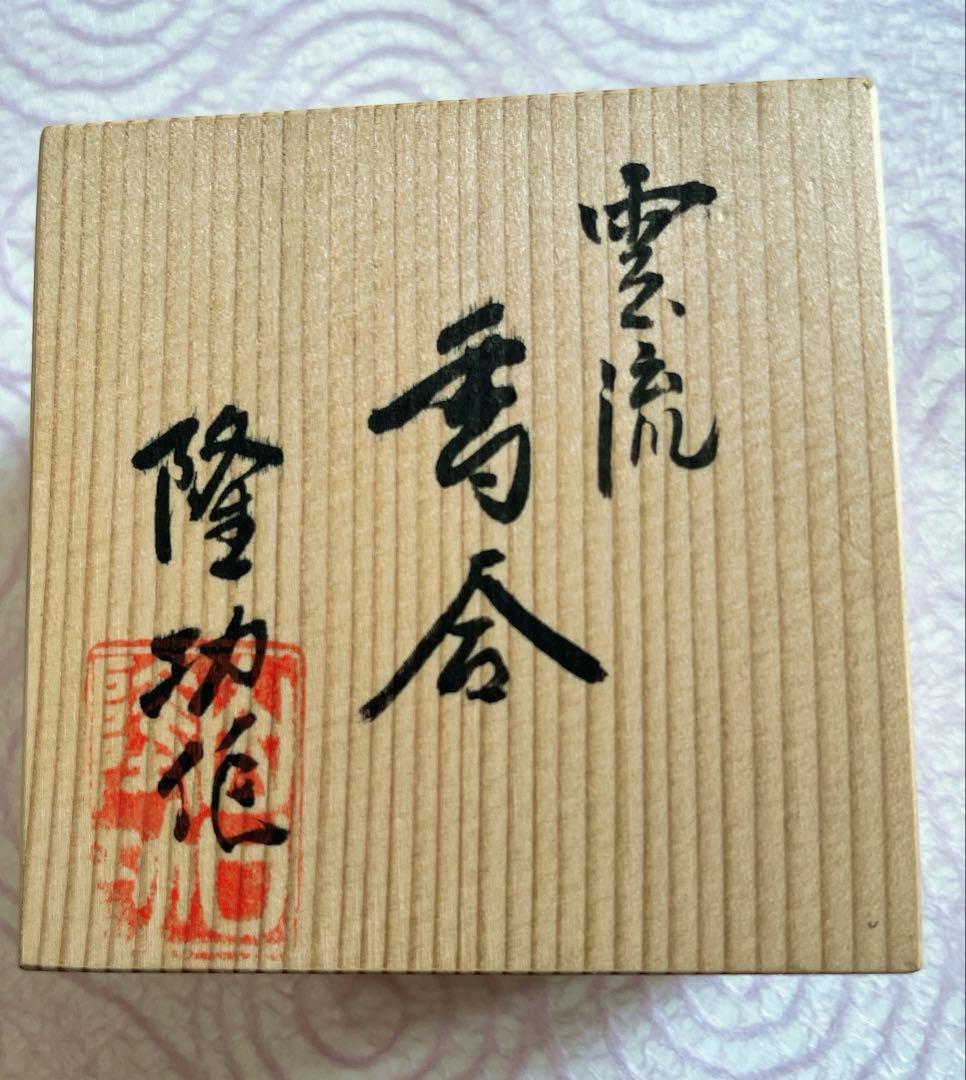 雲流
香合
隆功作